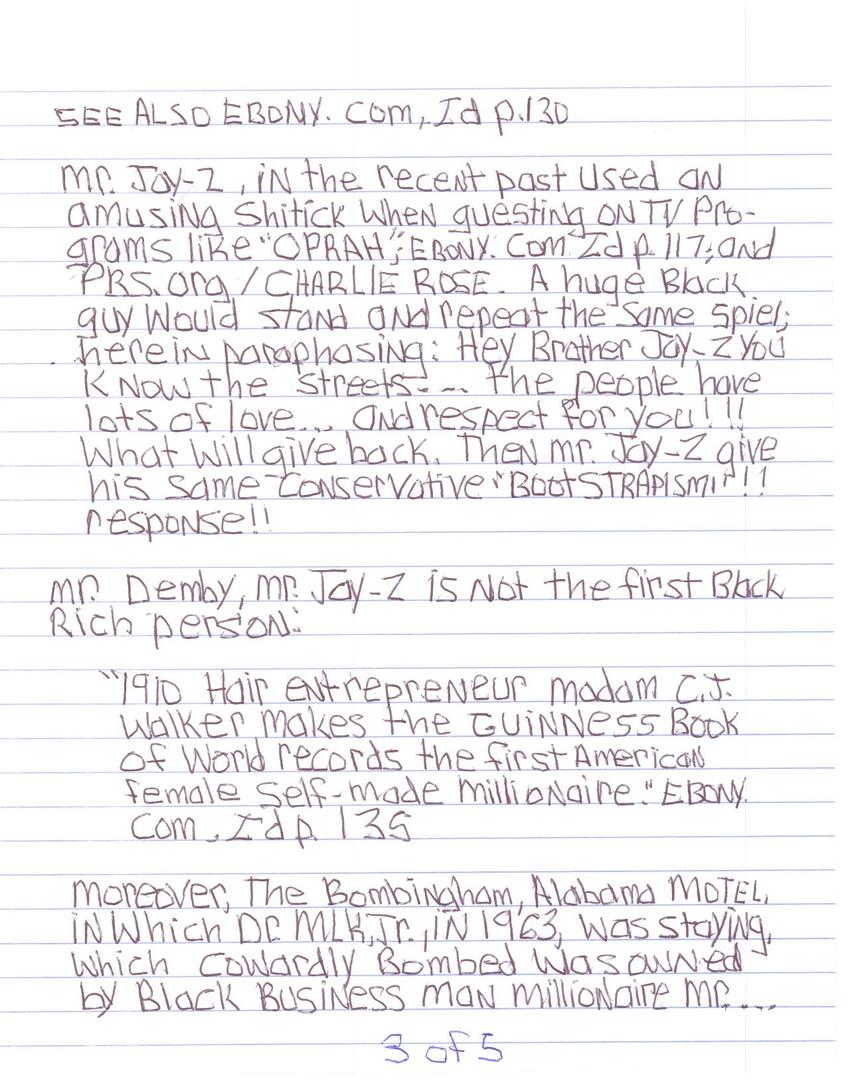 SEE ALSO EBONY. Com, Id p.130
Mr. Jay-Z, iN the recent past Used aN
amusiNg Shitick WheN guestiNg ON TV Pro-
grams like "OPRAH"; EBONY. Com Id p. 117; and
PBS.org / CHARLIE ROSE. A huge Black
guy Would stand and repeat the same spiel;
hereiN paraphasiNg: Hey Brother Jay-Z You
KNow the streets... the people have
lots of love... and respect for you!!!
What Will give back. TheN mr. Jay-Z give
his same conservative "BootSTRAPISM"!!
respoNse!!
mr. Demby, mr. Jay-Z is Not the first Black
Rich persoN:
"1910 Hair eNtrepreNeur madam C.J.
Walker makes the GUiNNESS Book
of World records the first AmericaN
female self-made millioNaire." EBONY.
Com, Id p. 135
moreover, The BombiNgham, Alabama MOTEL,
iN Which Dr. MLK, Jr., iN 1963, was stayiNg,
Which Cowardly Bombed Was owNed
by Black BusiNess maN MillioNaire Mr. ...
3 of 5